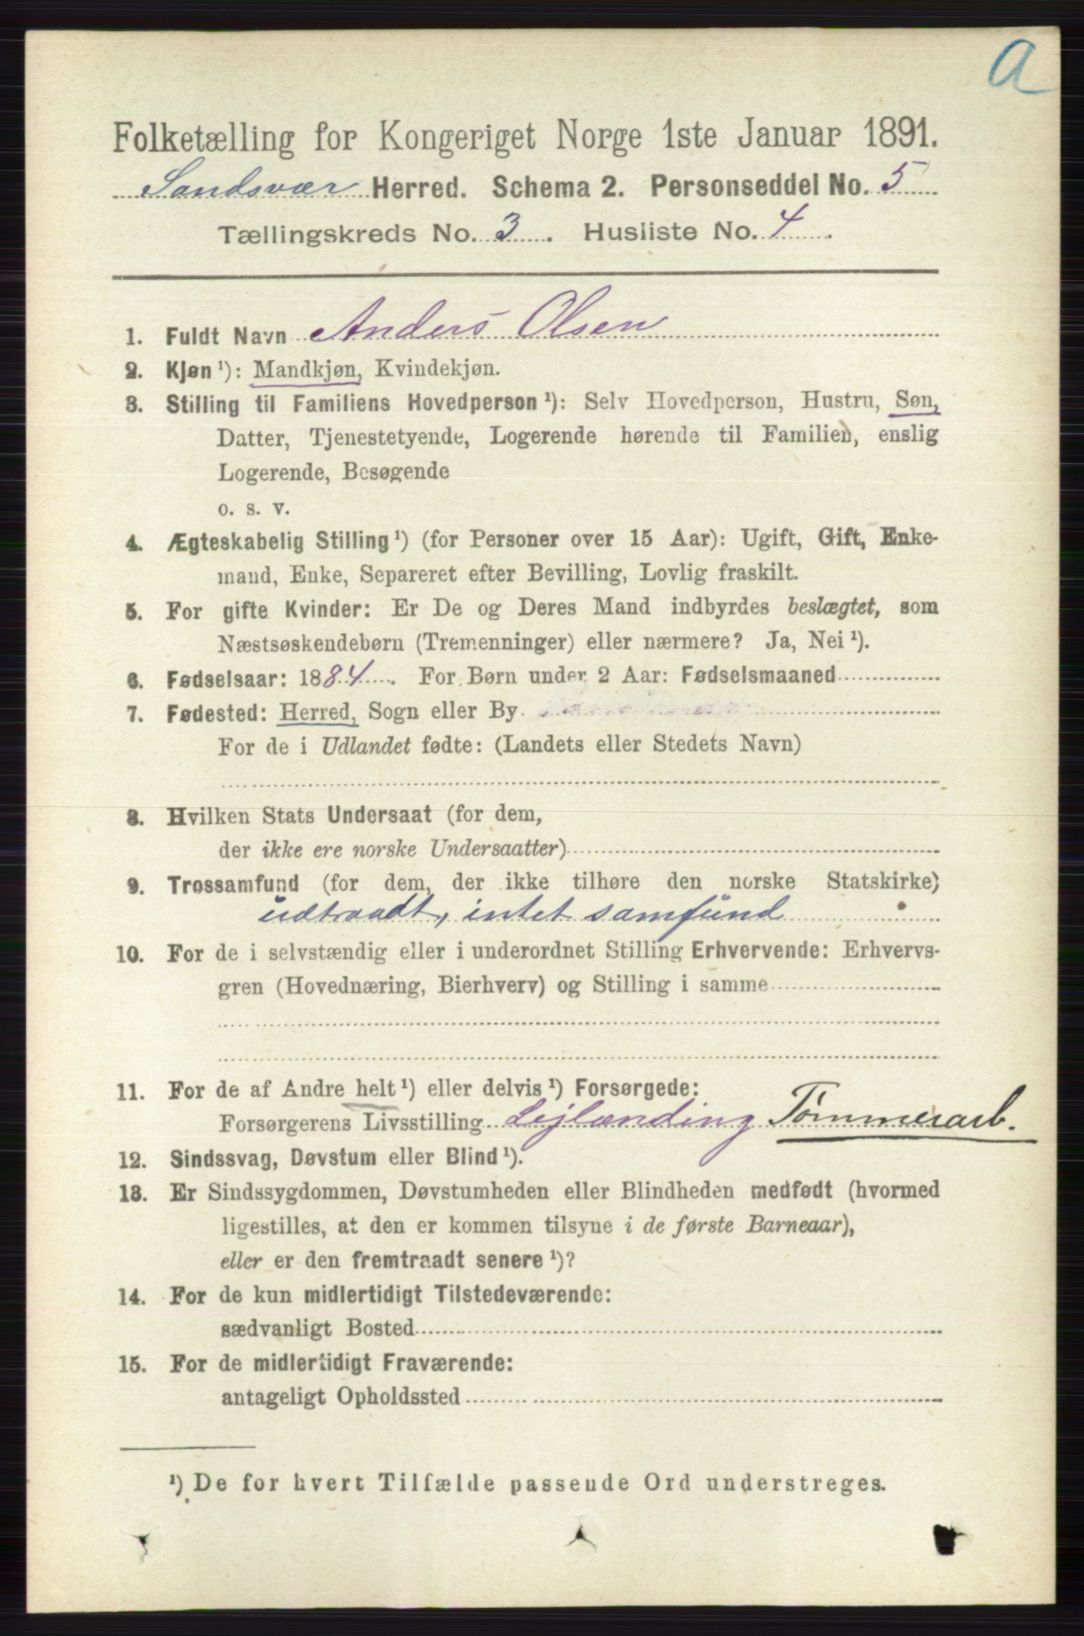 a
Folketælling for Kongeriget Norge 1ste Januar 1891.
Sandsvær Herred. Schema 2. Personseddel No. 5
Tællingskreds No. 3. Husliste No. 4.
1. Fuldt Navn Anders Olsen
2. Kjøn ¹): Mandkjøn, Kvindekjøn.
3. Stilling til Familiens Hovedperson ¹): Selv Hovedperson, Hustru, Søn,
Datter, Tjenestetyende, Logerende hørende til Familien, enslig
Logerende, Besøgende
o. s. v.
4. Ægteskabelig Stilling ¹) (for Personer over 15 Aar): Ugift, Gift, Enke-
mand, Enke, Separeret efter Bevilling, Lovlig fraskilt.
5. For gifte Kvinder: Er De og Deres Mand indbyrdes beslægtet, som
Næstsøskendebørn (Tremenninger) eller nærmere? Ja, Nei ¹).
6. Fødselsaar: 1884. For Børn under 2 Aar: Fødselsmaaned
7. Fødested: Herred, Sogn eller By
For de i Udlandet fødte: (Landets eller Stedets Navn)
8. Hvilken Stats Undersaat (for dem,
der ikke ere norske Undersaatter)
9. Trossamfund (for dem, der ikke tilhøre den norske Statskirke)
udtraadt, intet samfund
10. For de i selvstændig eller i underordnet Stilling Erhvervende: Erhvervs-
gren (Hovednæring, Bierhverv) og Stilling i samme
11. For de af Andre helt ¹) eller delvis ¹) Forsørgede:
Forsørgerens Livsstilling Lejlænding Tømmerarb.
12. Sindssvag, Døvstum eller Blind ¹).
13. Er Sindssygdommen, Døvstumheden eller Blindheden medfødt (hvormed
ligestilles, at den er kommen tilsyne i de første Barneaar),
eller er den fremtraadt senere ¹)?
14. For de kun midlertidigt Tilstedeværende:
sædvanligt Bosted
15. For de midlertidigt Fraværende:
antageligt Opholdssted
¹) De for hvert Tilfælde passende Ord understreges.